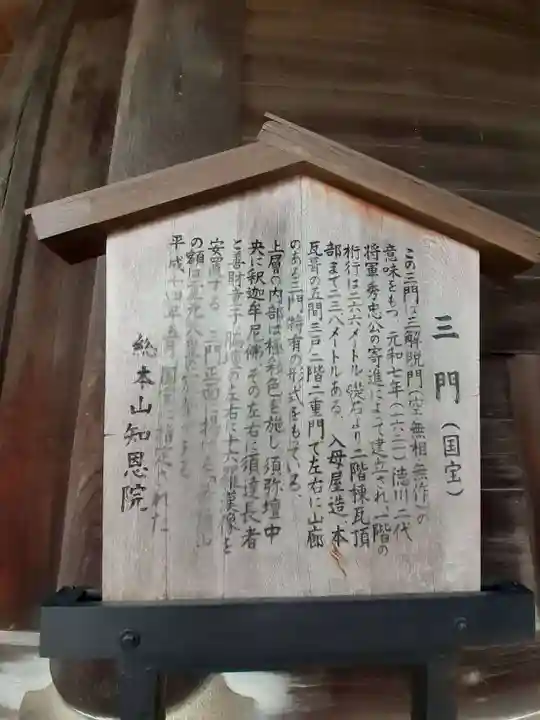 三門（国宝）
この三門は三解脱門（空・無相・無作）の
意味をもつ 元和七年（一六二一）徳川二代
将軍秀忠公の寄進によって建立され、一階の
桁行は二六・六メートル 礎石より二階棟瓦頂
部まで二三・八メートルある。入母屋造、本
瓦葺の五間三戸二階二重門で左右に山廊
のある三門特有の形式をもっている。
上層の内部は極彩色を施し須弥壇中
央に釈迦牟尼佛その左右に須達長者
と善財童子 脇壇の左右に十六羅漢像を
安置する 三門正面に
の額は
平成十四年五月国宝に指定された
総本山知恩院